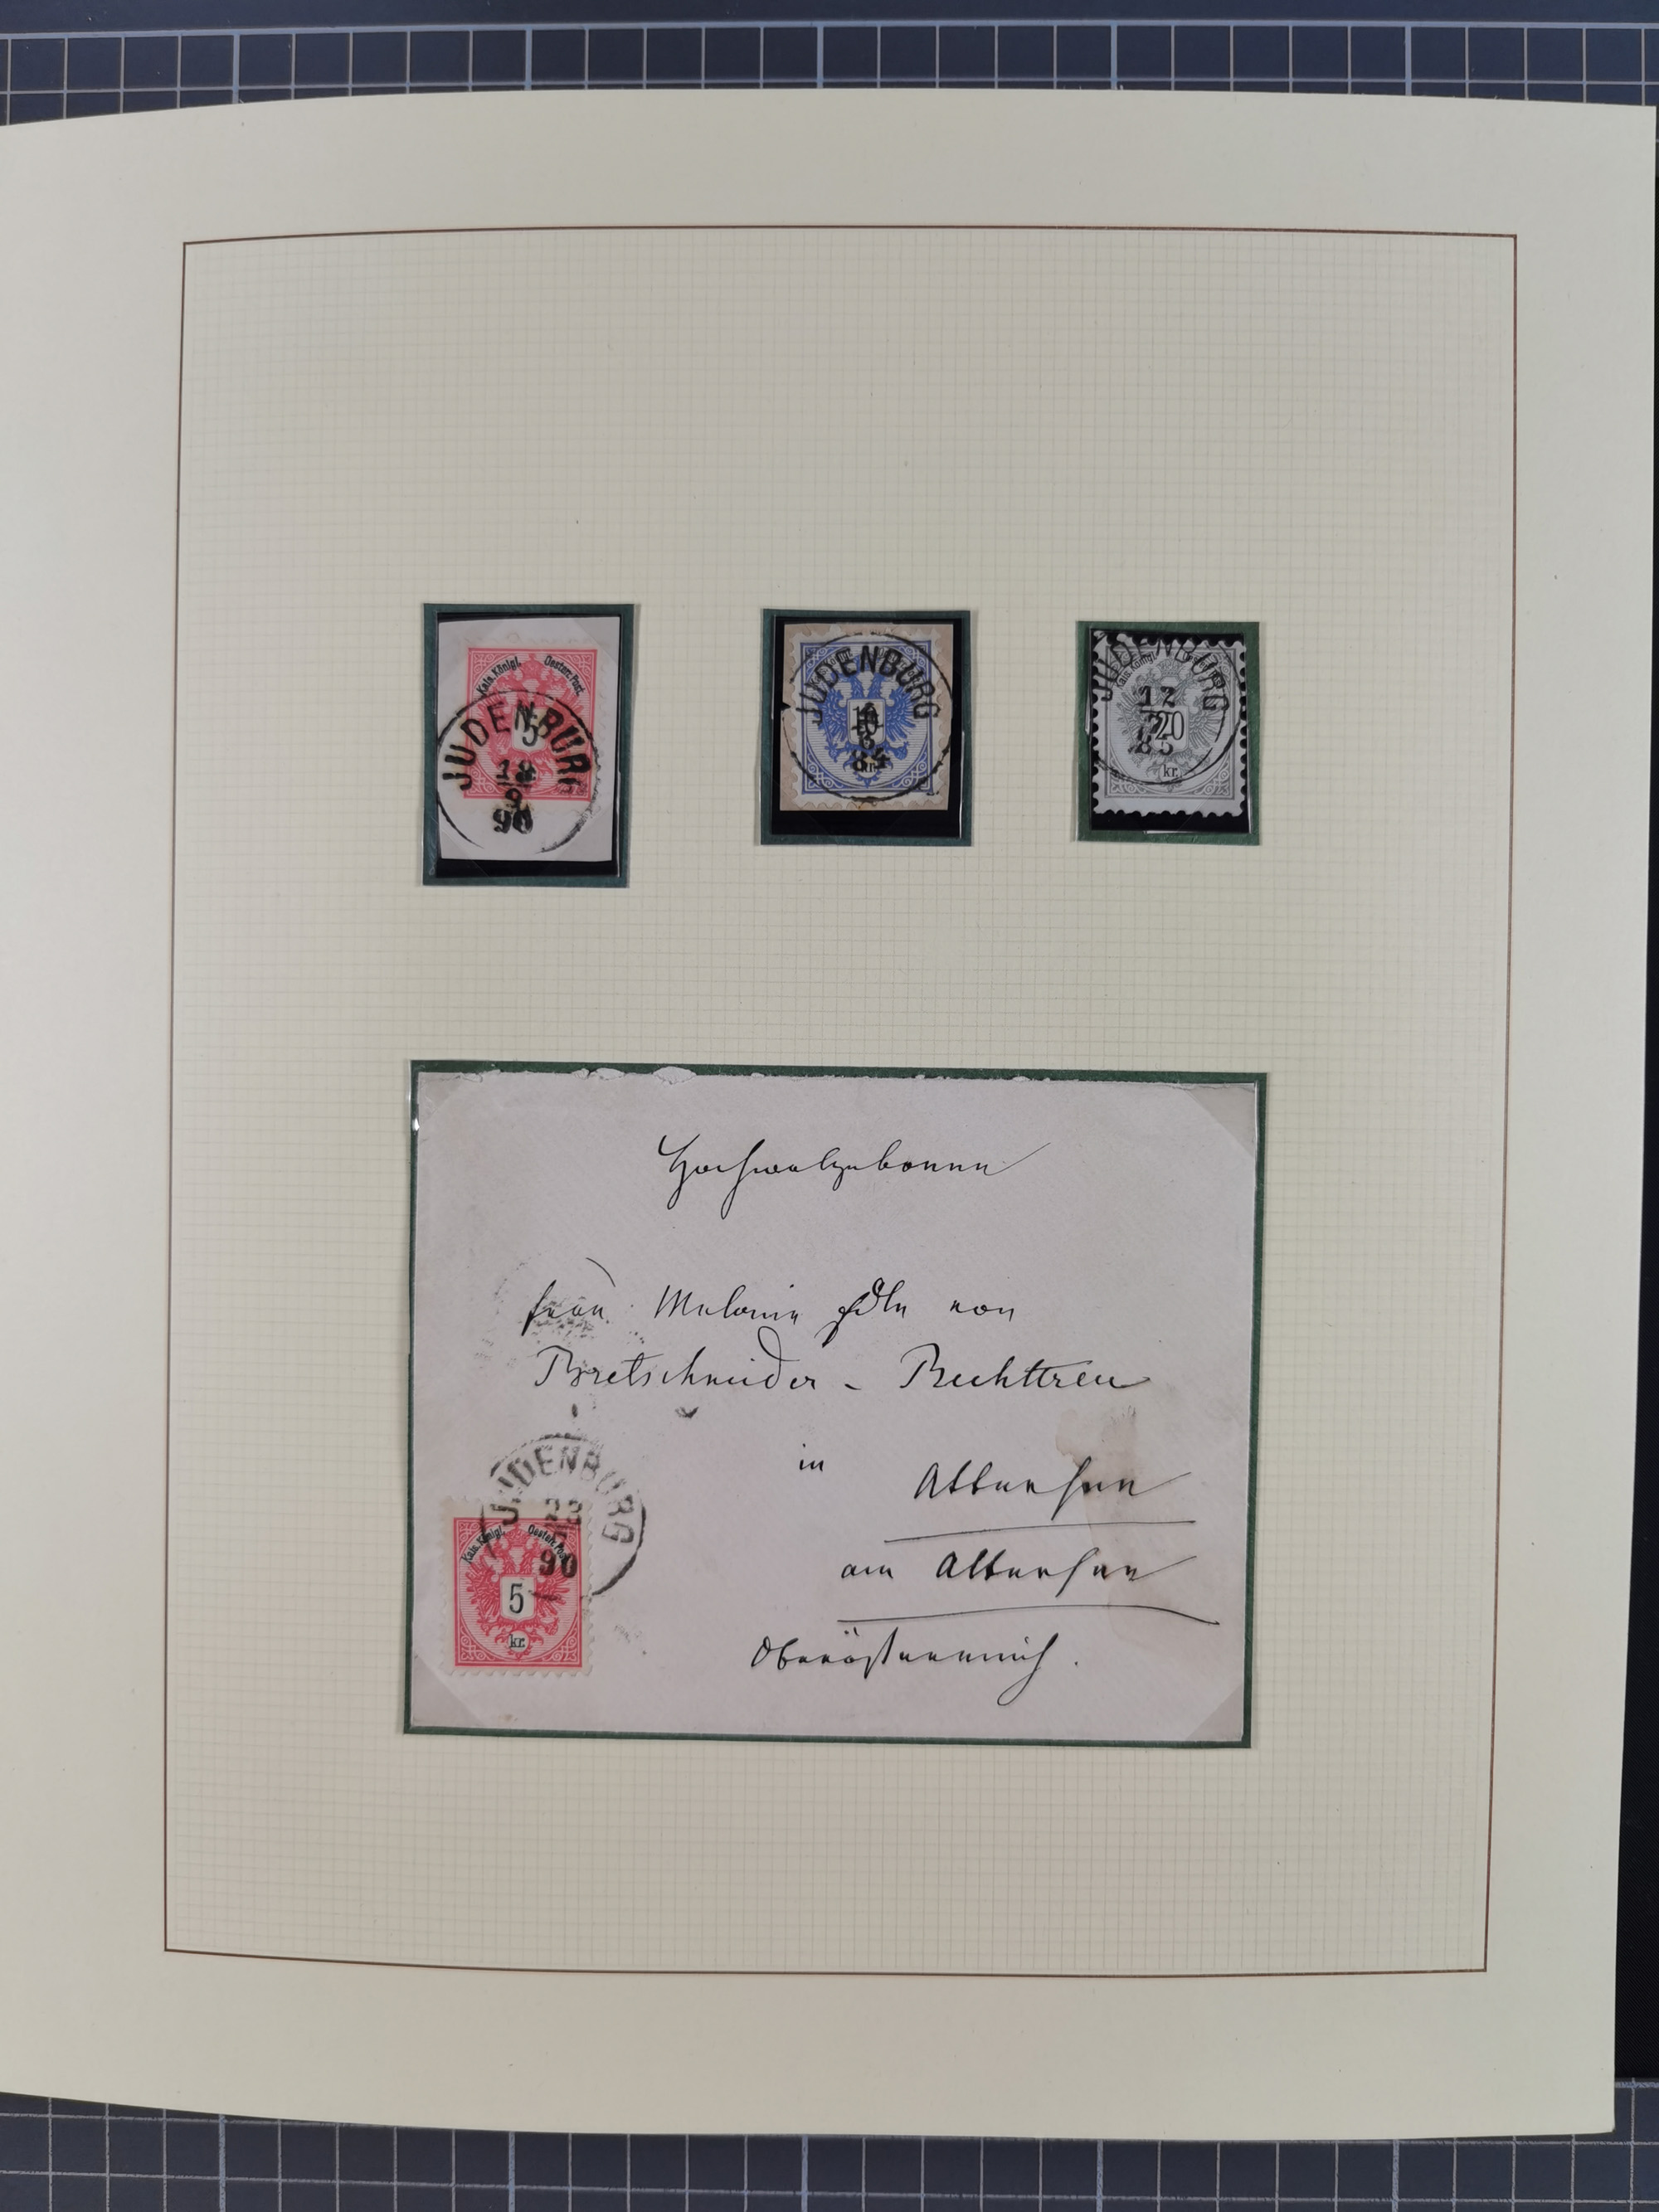 Kais. Königl. Oesterr. Post.
5
JUDENBURG
18
9
90
JUDENBURG
10
6
84
kr.
Kais. Königl.
JUDENBURG
12
20
85
kr.
Hochwohlgeboren
Frau Melanie Edle von
Bretschneider - Rechttreu
in Attersee
am Attersee
Oberösterreich.
JUDENBURG
23
90
Kais. Königl. Oesterr. Post.
5
kr.